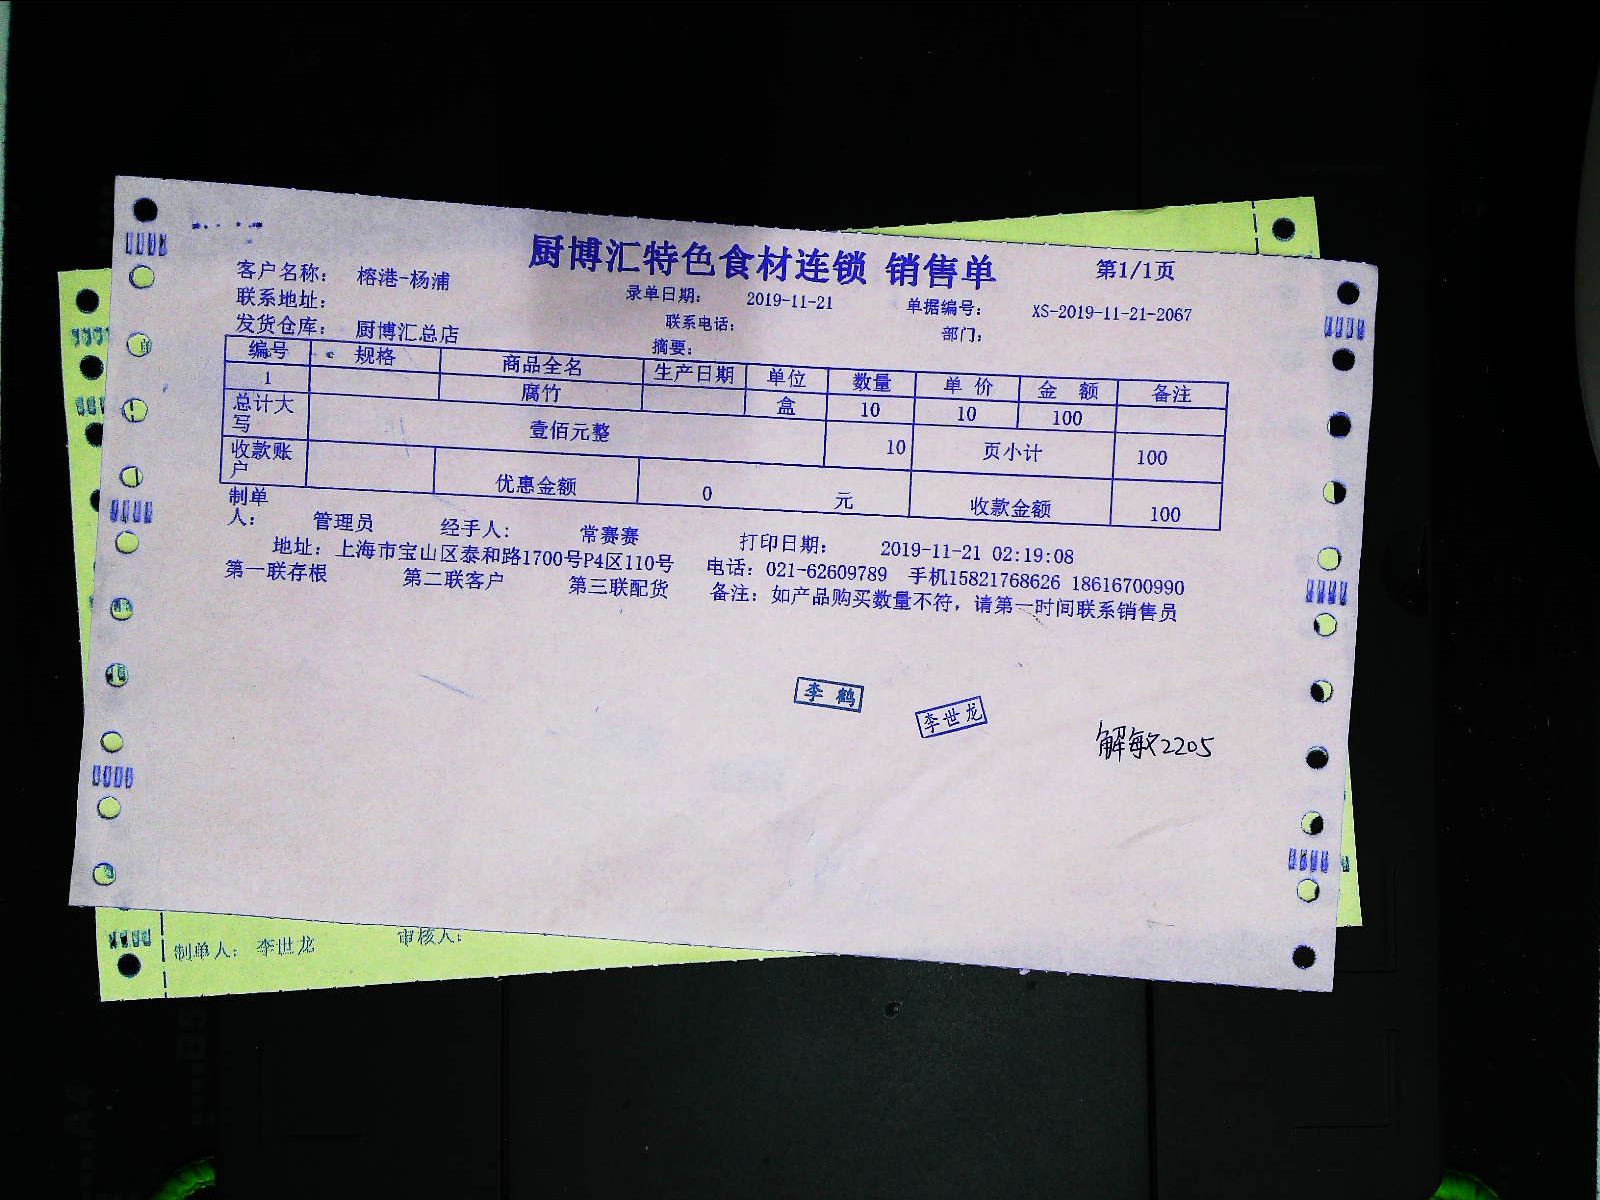 厨博汇特色食材连锁 销售单 第1/1页
客户名称： 榕港-杨浦
录单日期： 2019-11-21 单据编号： XS-2019-11-21-2067
联系地址： 联系电话： 部门：
发货仓库： 厨博汇总店 摘要：
编号 规格 商品全名 生产日期 单位 数量 单 价 金 额 备注
1 腐竹 盒 10 10 100
总计大写 壹佰元整 10 页小计 100
收款账户 优惠金额 0 元 收款金额 100
制单人： 管理员 经手人： 常赛赛 打印日期： 2019-11-21 02:19:08
地址：上海市宝山区泰和路1700号P4区110号 电话：021-62609789 手机15821768626 18616700990
第一联存根 第二联客户 第三联配货 备注：如产品购买数量不符，请第一时间联系销售员
李 鹤
李世龙
解敏2205
制单人： 李世龙 审核人：